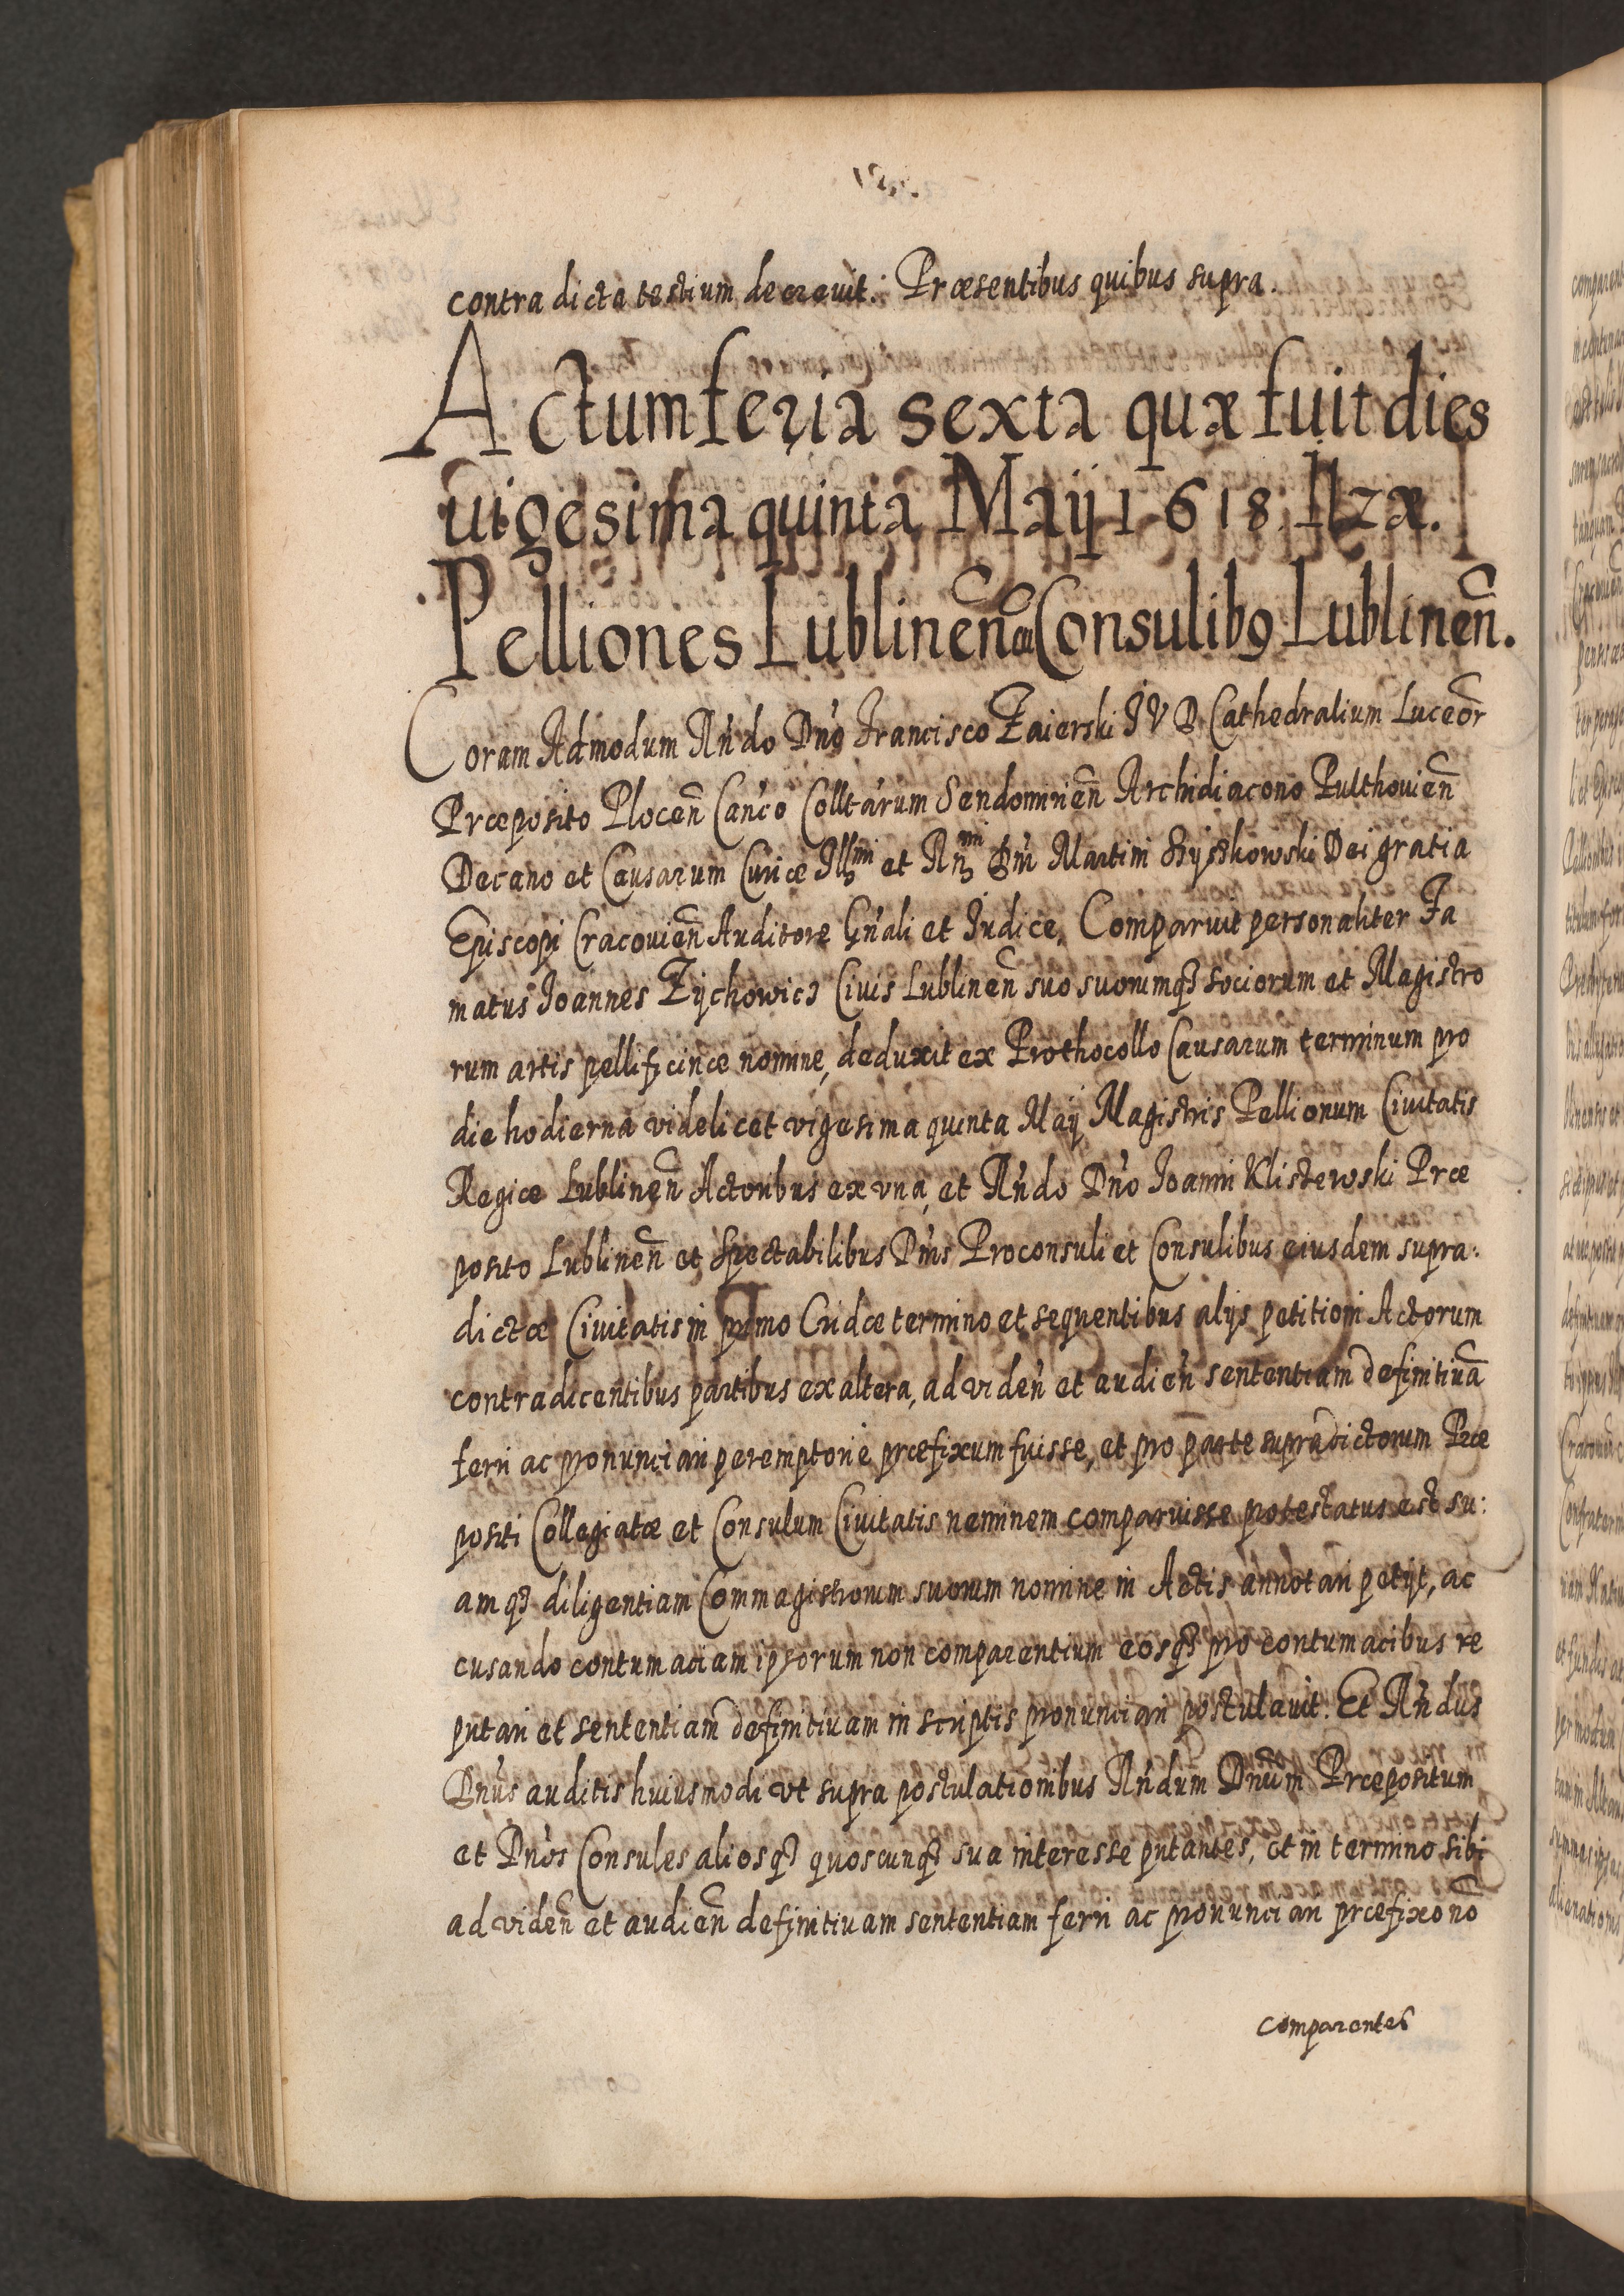 contra dicta testium decrevit. Præsentibus quibus supra.
Actum feria sexta quæ fuit dies
uigesima quinta Maij 1618. Ilzæ.
Pelliones Lublineñ cũ Consulib9 Lublineñ.
Coram Admodum Rñdo Dño Francisco Zaierski I V D Cathedralium Luceoř
Præposito Ploceñ Cañco Colltarum Sendomirieñ Archidiacono Pulthouieñ
Decano et Causarum Curiæ Illmi et Rmi Dñi Martini Szyszkowski Dei gratia
Episcopi Cracouieñ Auditore Gñali et Iudice, Comparuit personaliter Fa
matus Ioannes Zychowicz Ciuis Lublineñ suo suorumq3 sociorum et Magistro
rum artis pellificinæ nomine, deduxit ex Prothocollo Causarum terminum pro
die hodierna videlicet vigesima quinta Maij Magistris Pellionum Ciuitatis
Regiæ Lublineñ Actoribus ex vna, et Rñdo Dño Ioanni Klistewski Præ
posito Lublineñ et Spectabilibus Dñis Proconsuli et Consulibus eiusdem supra:
dictæ Ciuitatis in primo Cridæ termino et sequentibus alijs petitioni Actorum
contradicentibus partibus ex altera, ad videñ et audieñ sententiam definitiuã
ferri ac pronunciari peremptorie præfixum fuisse, et pro parte supradictorum Præ
positi Collegiatæ et Consulum Ciuitatis neminem comparuisse protestatus est su:
amq3 diligentiam Commagistrorum suorum nomine in Actis annotari petijt, ac
cusando contumaciam ipsorum non comparentium eosq3 pro contumacibus re
putari et sententiam definitiuam in scriptis pronunciari postulauit. Et Rñdus
Dñus auditis huiusmodi vt supra postulationibus Rñdum Dñum Præpositum
et Dños Consules aliosq3 quoscunq3 sua interesse putantes, et in termino sibi
ad videñ et audieñ definitiuam sententiam ferri ac pronunciari præfixo nõ
comparentes